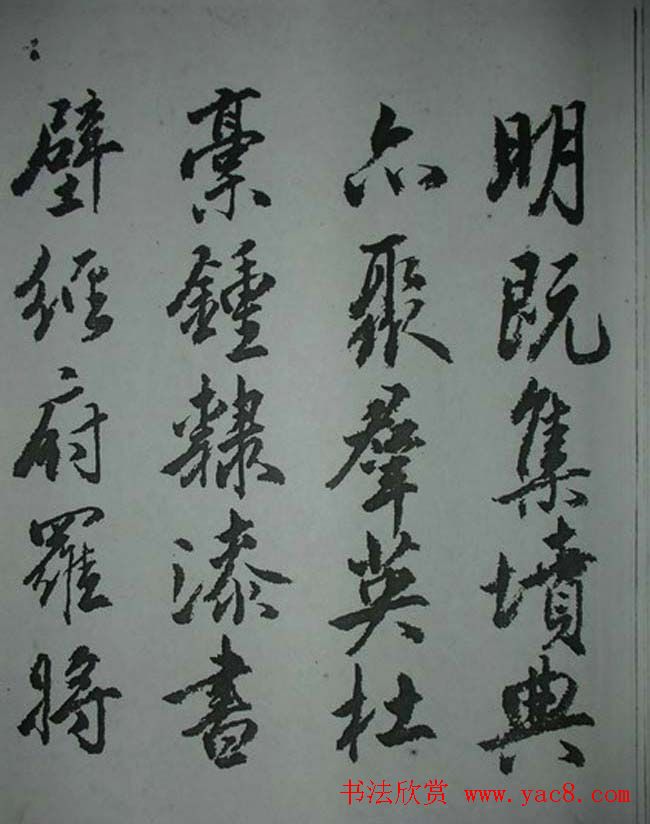 明既集墳典
亦聚群英杜
稾鍾隸漆書
壁經府羅將
书法欣赏 www.yac8.com